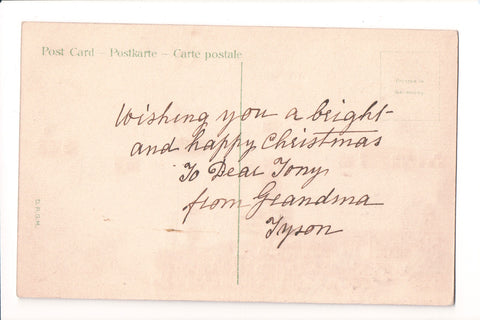 Post Card – Postkarte – Carte postale
Wishing you a bright
and happy Christmas
To Dear Tony
from Grandma
Tyson
D.R.G.M.